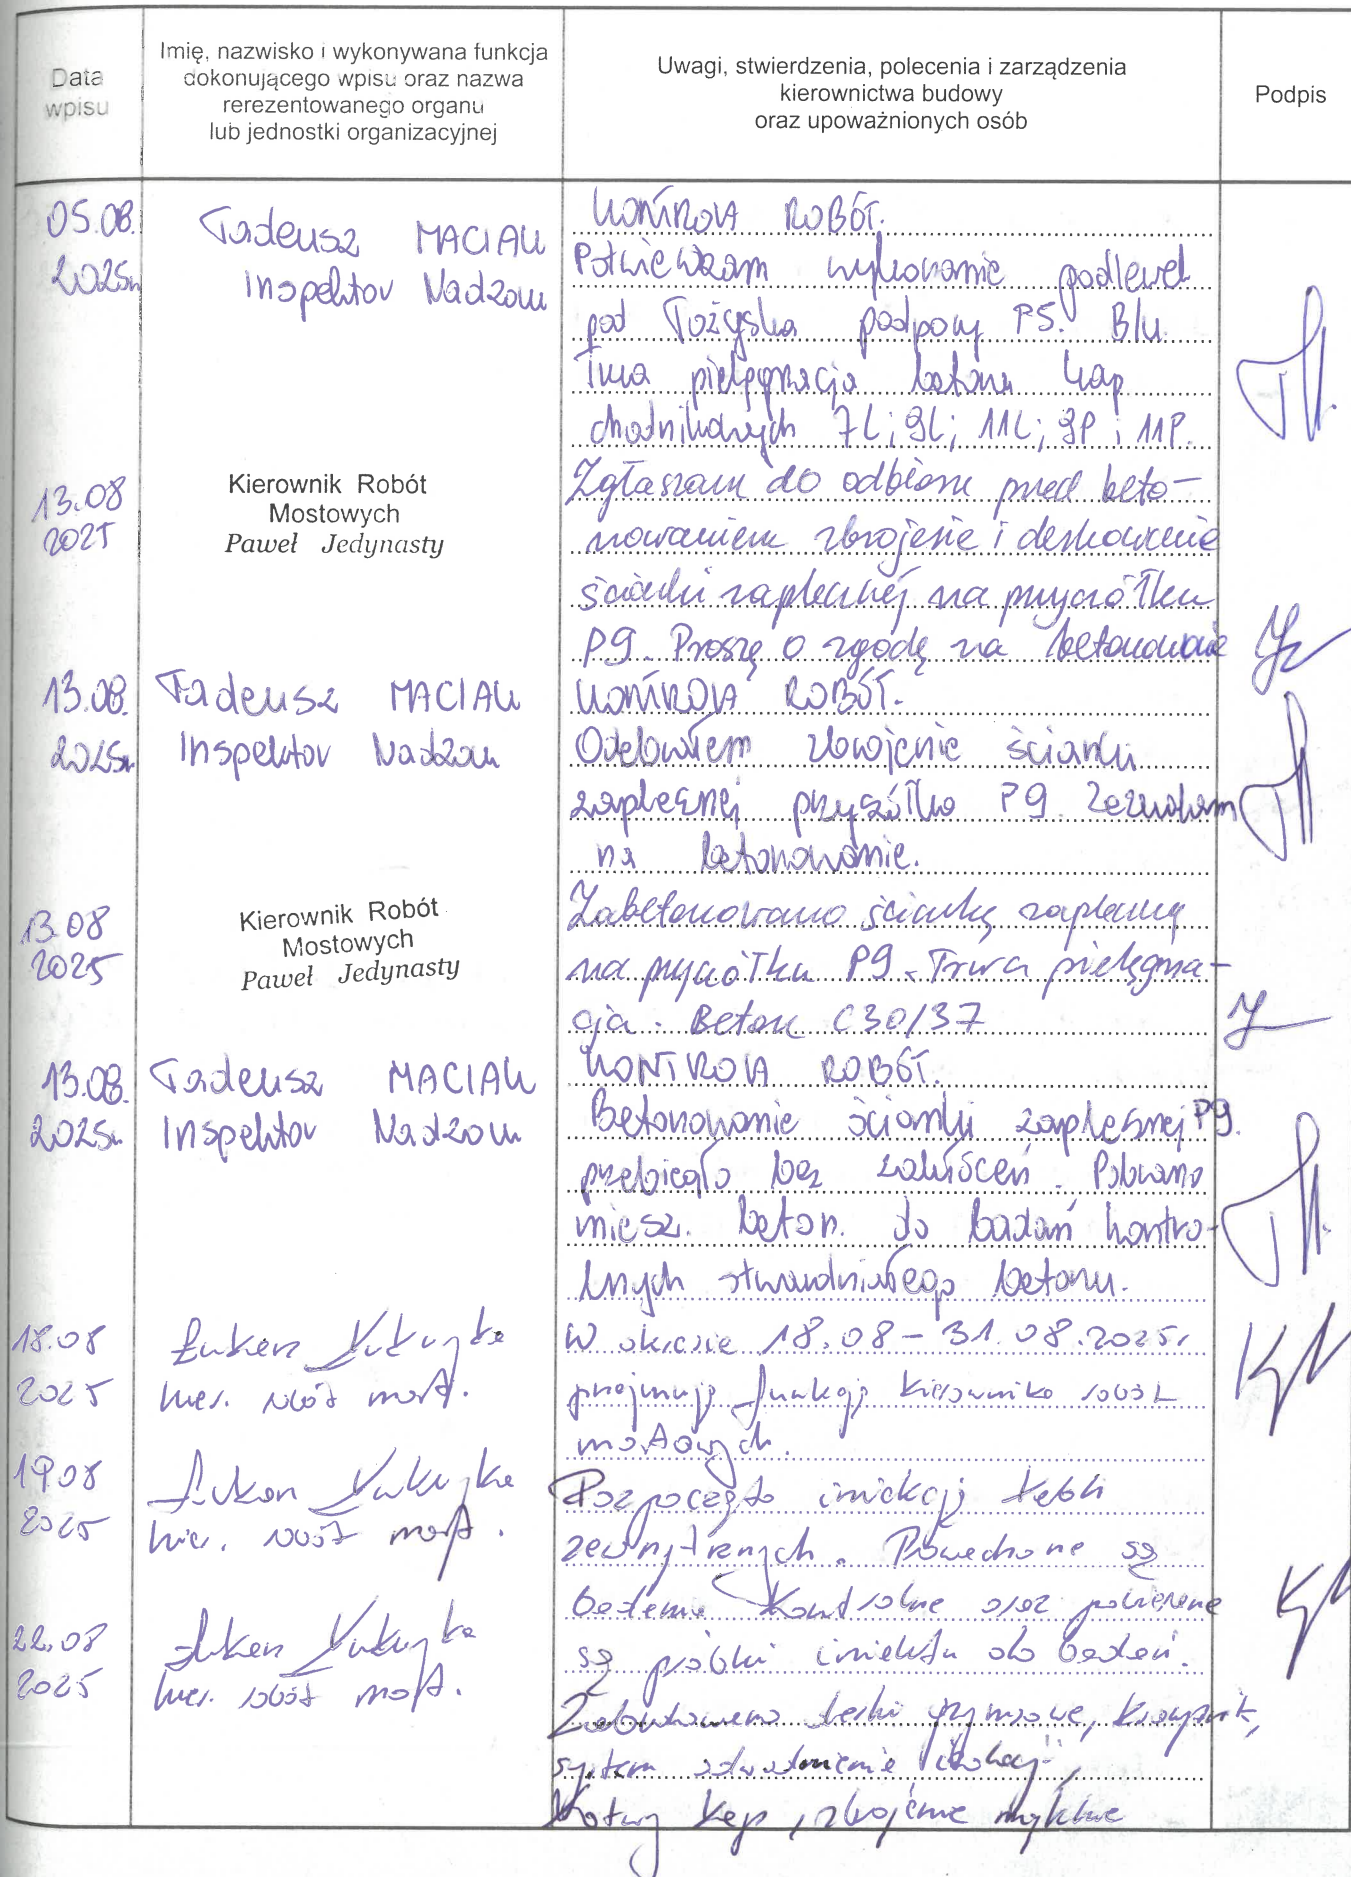 Data
wpisu
Imię, nazwisko i wykonywana funkcja
dokonującego wpisu oraz nazwa
rerezentowanego organu
lub jednostki organizacyjnej
Uwagi, stwierdzenia, polecenia i zarządzenia
kierownictwa budowy
oraz upoważnionych osób
Podpis
05.08.
2025r.
Tadeusz MACIAK
Inspektor Nadzoru
KONTROLA ROBÓT.
Potwierdzam wykonanie podlewek
pod łożyska podpory P5.
Trwa pielęgnacja betonu kap
chodnikowych 7L; 9L; 11L; 9P i 11P.
13.08
2025
Kierownik Robót
Mostowych
Paweł Jedynasty
Zgłaszam do odbioru przed beto-
nowaniem zbrojenie i deskowanie
ścianki zaplecznej na przyczółku
P9. Proszę o zgodę na betonowanie
13.08.
2025r.
Tadeusz MACIAK
Inspektor Nadzoru
KONTROLA ROBÓT.
Odebrałem zbrojenie ścianki
zaplecznej przyczółka P9. Zezwalam
na betonowanie.
13.08
2025
Kierownik Robót
Mostowych
Paweł Jedynasty
Zabetonowano ściankę zapleczną
na przyczółku P9. Trwa pielęgna-
cja. Beton C30/37
13.08.
2025r.
Tadeusz MACIAK
Inspektor Nadzoru
KONTROLA ROBÓT.
Betonowanie ścianki zaplecznej P9.
przebiegało bez zakłóceń. Pobrano
miesz. beton. do badań kontro-
lnych stwardniałego betonu.
18.08
2025
Łukasz
kier. robót most.
W okresie 18.08 - 31.08.2025r
przejmuję funkcję kierownika robót
mostowych.
19.08
2025
Łukasz
kier. robót most.
Rozpoczęto iniekcję kabli
zewnętrznych. Prowadzone są
badania kontrolne oraz pobierane
są próbki iniektu do badań.
22.08
2025
Łukasz
kier. robót most.
Zabudowano deski gzymsowe, krawężnik,
system odwodnienia izolacji,
kotwy kap, zbrojenie